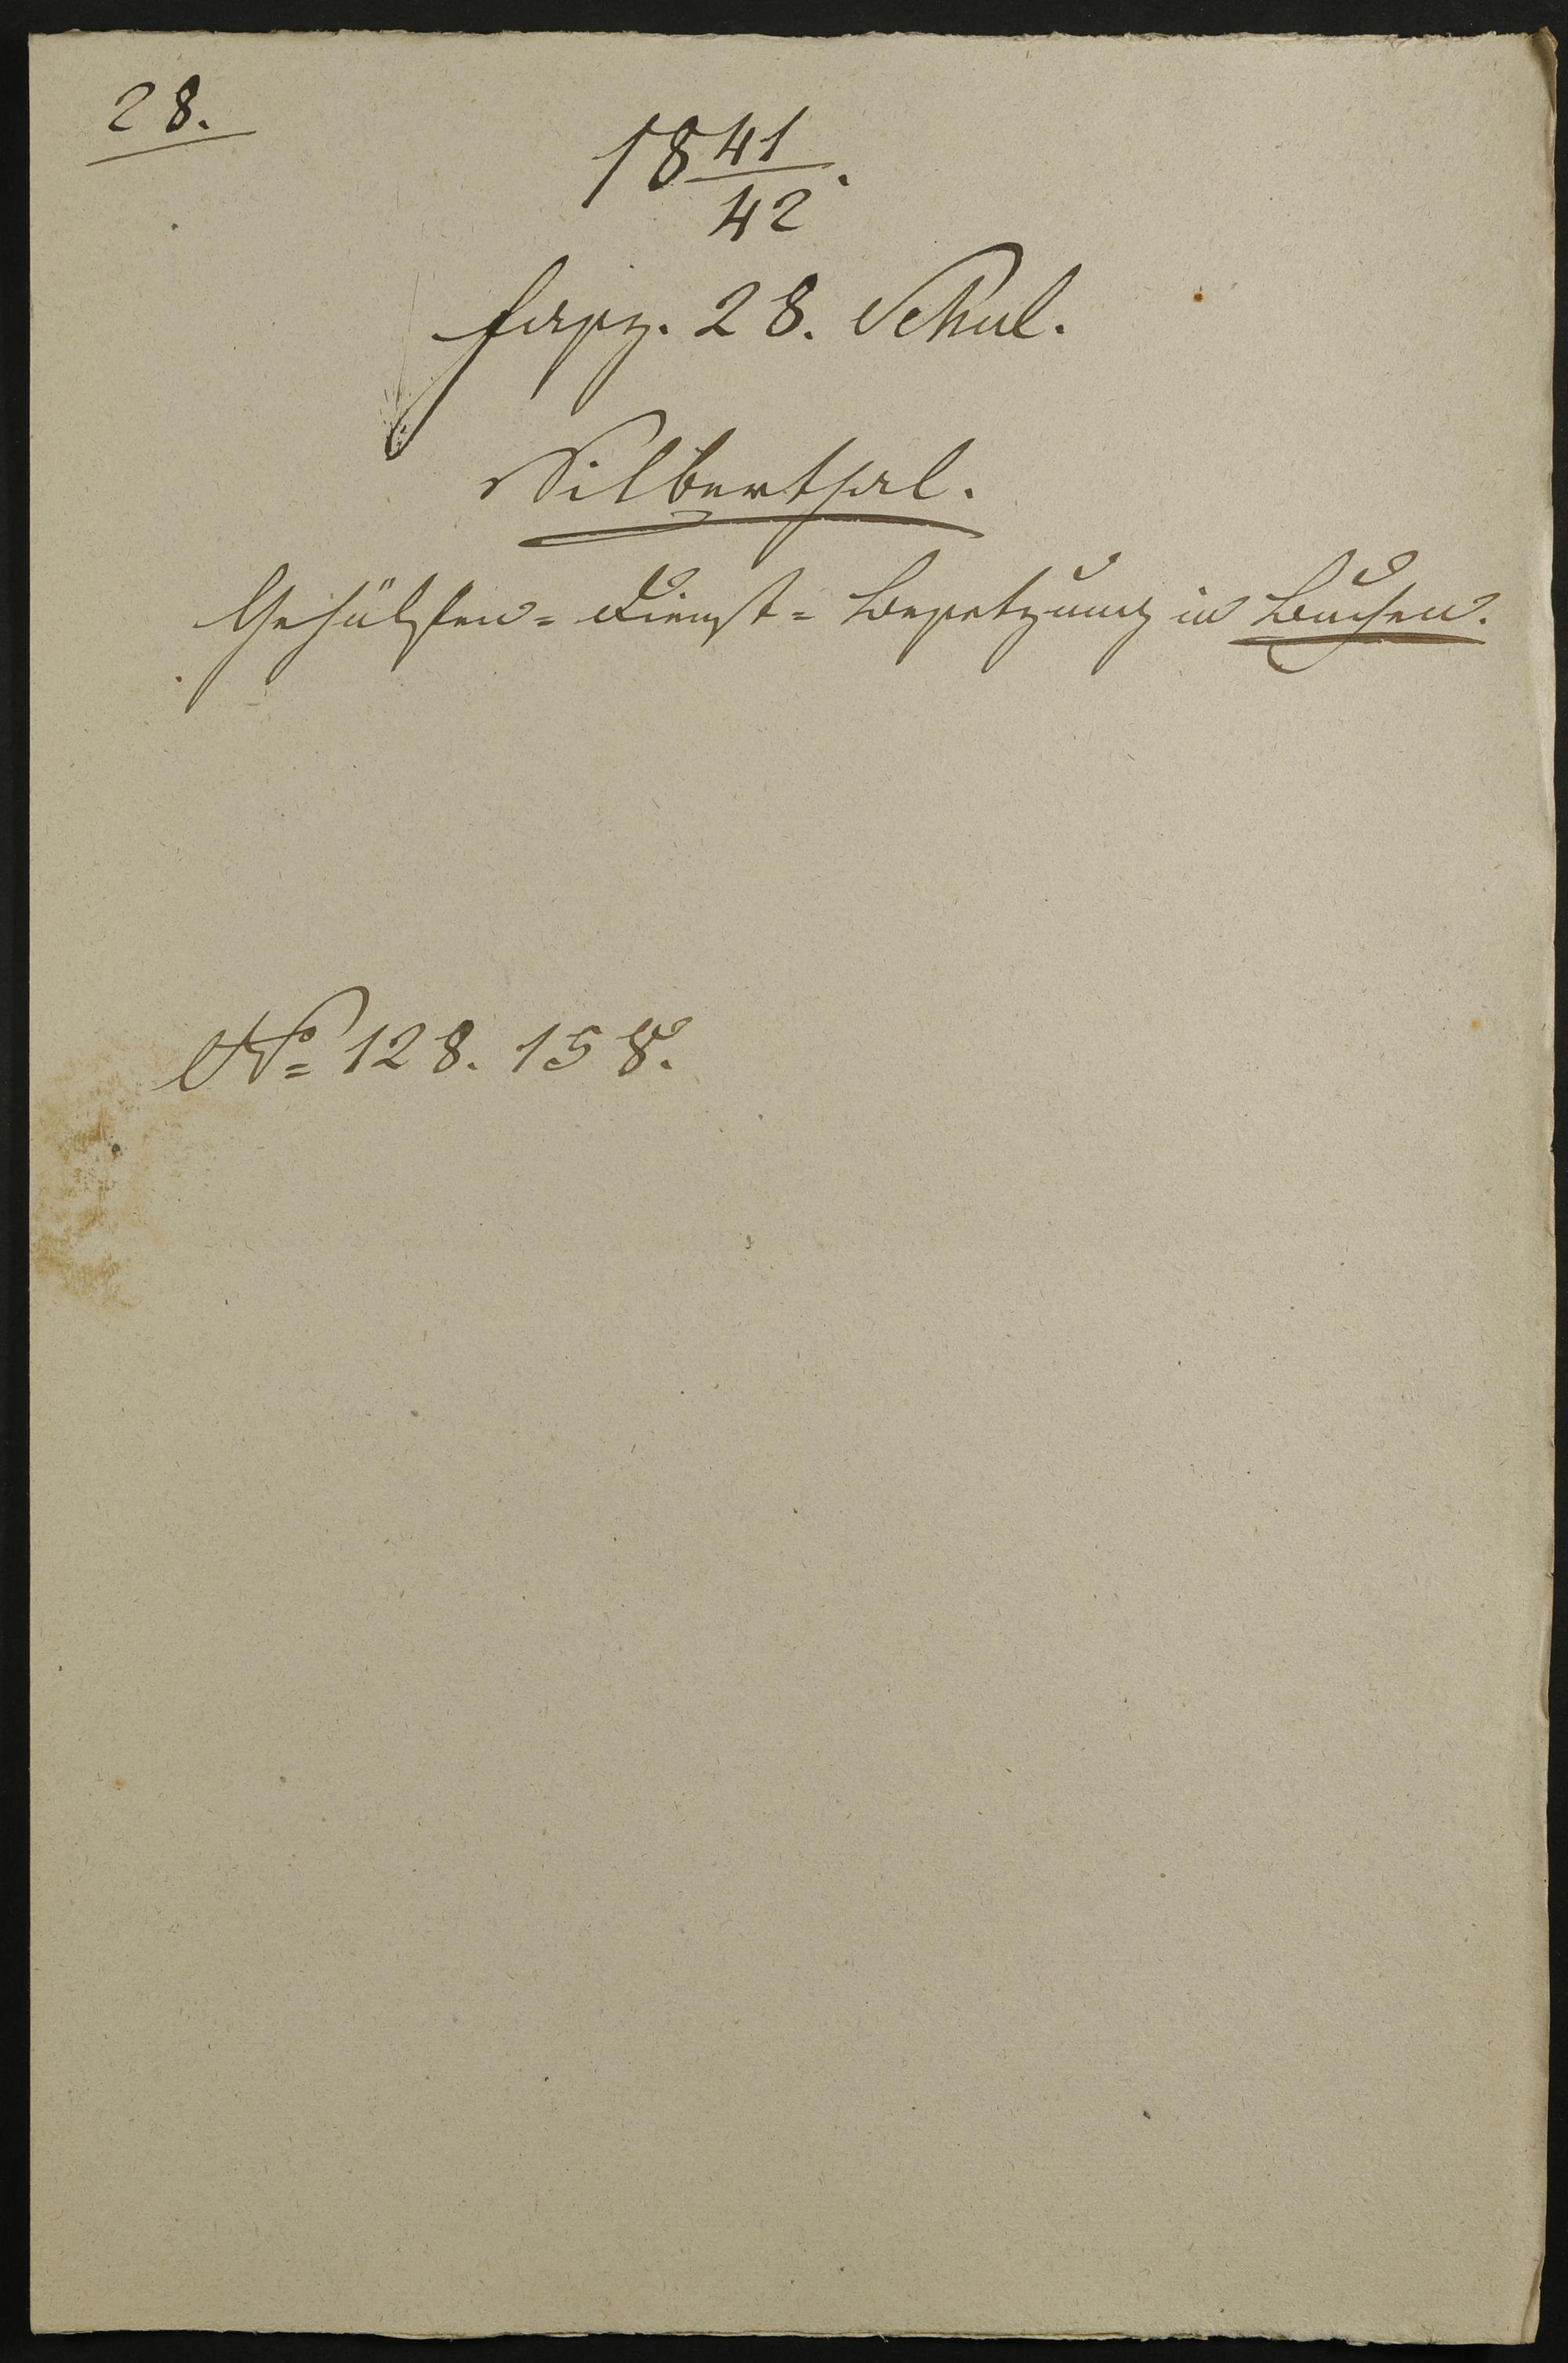 28.
18 41/42.
fasz. 28. Schul.
Silberthal.
Gehülfen=Dienst=Besetzung in Buchen.
No 128. 158.